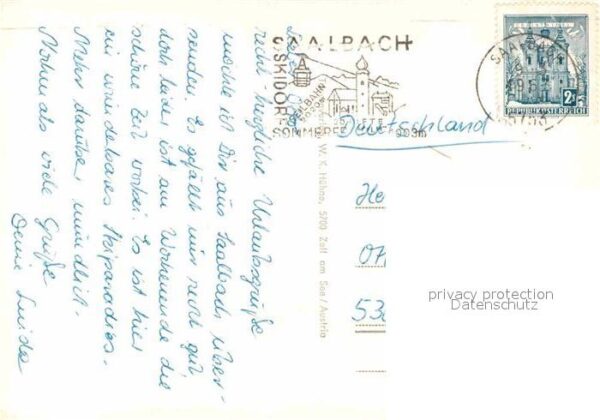 SAALBACH
SKIDORF
SOMMERF
1003m
REPUBLIK ÖSTERREICH
Deutschland
He
07
53
W. K. Hühne, 5700 Zell am See/Austria
recht herzliche Urlaubsgrüße
möchte ich Dir aus Saalbach über-
senden. Es gefällt mir recht gut
doch leider ist am Wochenende die
schöne Zeit vorbei. Es ist hier
ein wunderbares Skiparadies.
Mehr darüber mündlich.
Nochmals viele Grüße
Deine Luida
privacy protection
Datenschutz